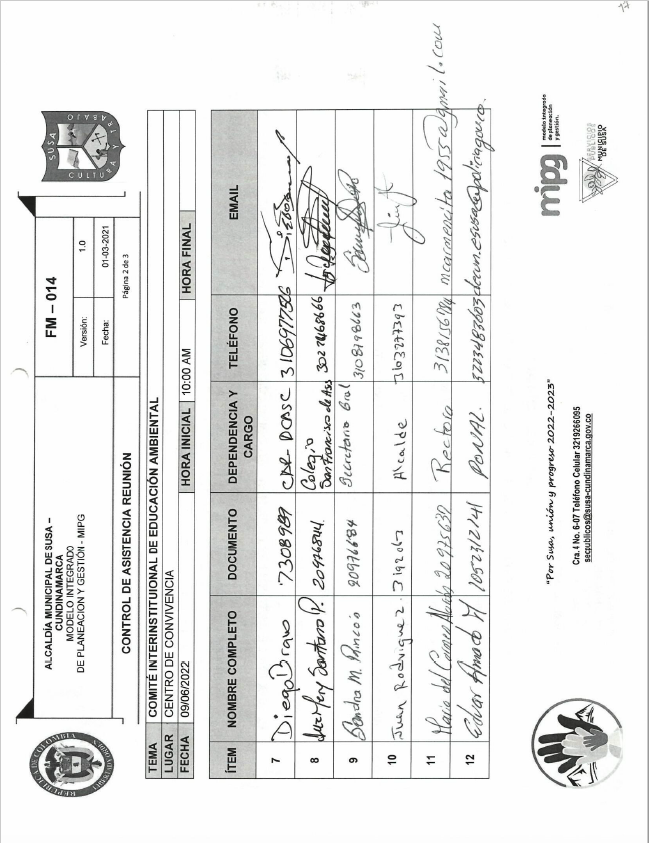 ALCALDÍA MUNICIPAL DE SUSA –
CUNDINAMARCA
MODELO INTEGRADO
DE PLANEACION Y GESTIÓN - MIPG
FM – 014
Versión: 1.0
Fecha: 01-03-2021
CONTROL DE ASISTENCIA REUNIÓN
Página 2 de 3
SUSA
CULTURA Y TRABAJO
TEMA COMITÉ INTERINSTITUIONAL DE EDUCACIÓN AMBIENTAL
LUGAR CENTRO DE CONVIVENCIA
FECHA 09/06/2022 HORA INICIAL 10:00 AM HORA FINAL
ÍTEM NOMBRE COMPLETO DOCUMENTO DEPENDENCIA Y CARGO TELÉFONO EMAIL
7 Diego Bravo 7308989 CAR DCASC 3106977506
8 Santana P. 20976841 Colegio San Francisco de Asis 3027468666
9 Sandra M. Rincón 20976684 Secretaria Gral 3108198663
10 Juan Rodriguez. Alcalde 3163277393
11 Maria del Carmen 20925639 Rectora mcarmencita1955@gmail.com
12 Amado M 1052312141 PONAL.
"Por Susa, unión y progreso 2022-2023"
Cra.4 No. 6-07 Teléfono Celular 3219266095
secpublicos@susa-cundinamarca.gov.co
mipg
modelo integrado
de planeación
y gestión.
MUNICIPIO
DE SUSA